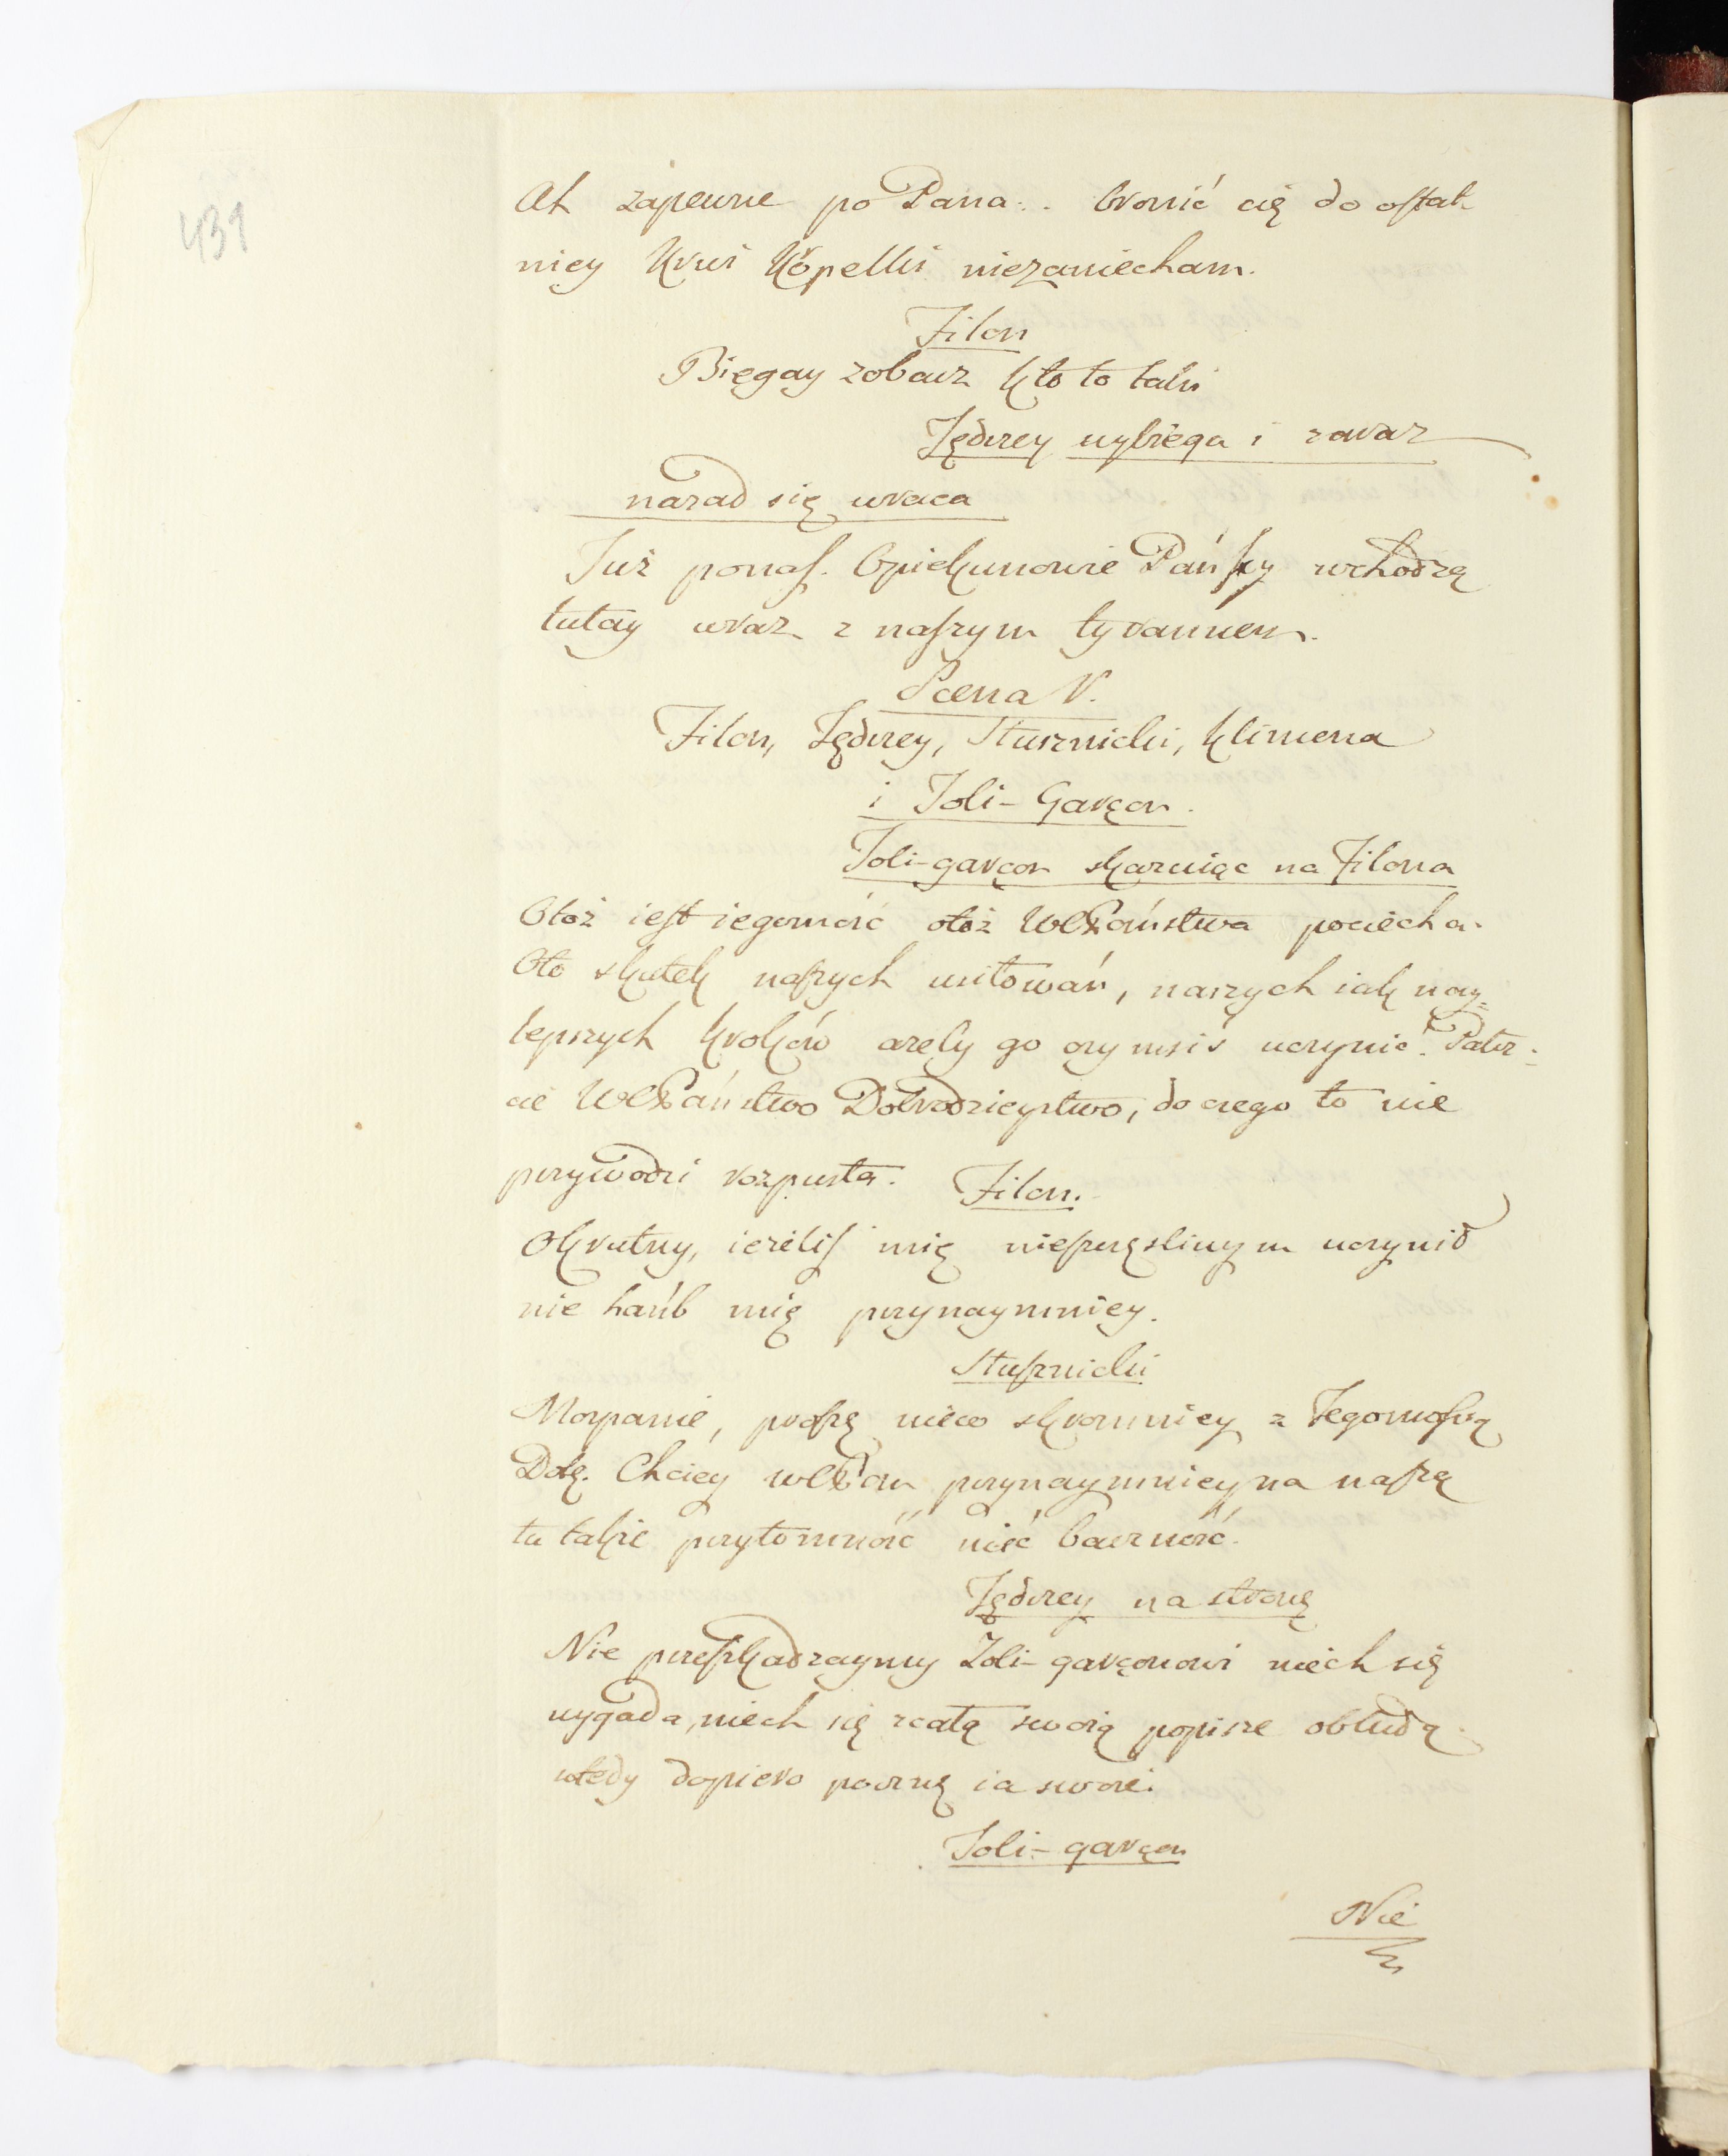 431
Ah zapewne po Pana... bronić cię do ostat
niey krwi kropelki niezaniecham.
Filon
Biegay zobacz kto to taki
Jędrzey wybiega i zaraz
nazad się wraca
Już ponas. Opiekunowie Pańscy wchodzą
tutay wraz z naszym tyrannem.
Scena V.
Filon, Jędrzey, Stusznicki, Klimena
i Joli-Garçon.
Joli-garçon skarżąc na Filona
Otoż iest iegomość otoż WPaństwa pociecha.
Oto skutek naszych usiłowań, naszych iak nay-
lepszych kroków ażeby go czymsiś uczynić. Patrz-
cie WPaństwo Dobrodzieystwo, do czego to nie
przywodzi rozpusta.
Filon.
Okrutny, ieżeliś mię nieszczęśliwym uczynił
nie hańb mię przynaymniey.
Stusznicki
Mospanie, proszę nieco skromniey z Jegomością
Dobę. Chciey WPan przynaymniey na naszę
tu także przytomność mieć baczność.
Jędrzey na stronę
Nie przeszkadzaymy Joli-garçonowi niech się
wygada, niech się z całą swoią popisze obłudą
wtedy dopiero pocznę ia swoie.
Joli-garçon
Nie